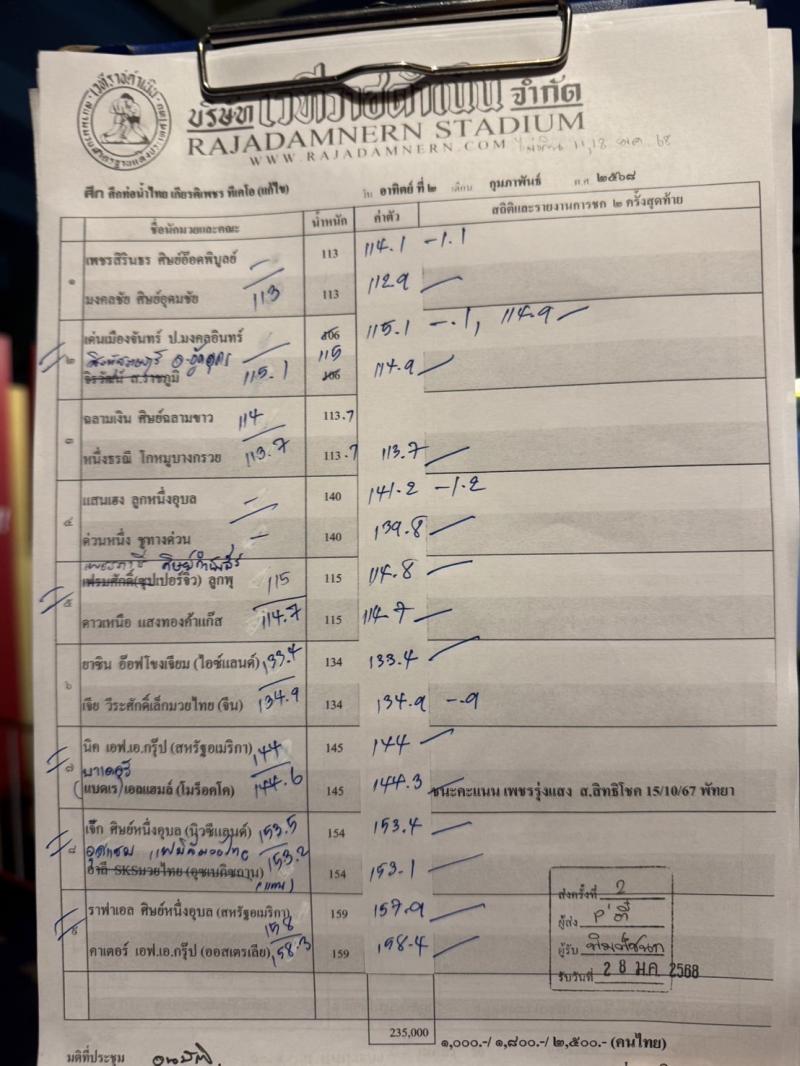 บริษัท เวทีราชดำเนิน จำกัด
RAJADAMNERN STADIUM
WWW.RAJADAMNERN.COM
ศึก ศึกท่อน้ำไทย เกียรติเพชร ทีเคโอ (แก้ไข) วัน อาทิตย์ ที่ ๒ เดือน กุมภาพันธ์ พ.ศ ๒๕๖๘
ชื่อนักมวยและคณะ น้ำหนัก ค่าตัว สถิติและรายงานการชก ๒ ครั้งสุดท้าย
๑ เพชรสิรินธร ศิษย์อ๊อดพิบูลย์ – 113 114.1 -1.1
มงคลชัย ศิษย์อุดมชัย 113 113 112.9
๒ เด่นเมืองจันทร์ ป.มงคลอินทร์ 106 115.1 -.1, 114.9
115
จิรวัฒน์ ส.ราชภูมิ 115.1 106 114.9
๓ ฉลามเงิน ศิษย์ฉลามขาว 114 113.7
หนึ่งธรณี โกหมูบางกรวย 113.7 113.7 113.7
๔ แสนเฮง ลูกหนึ่งอุบล – 140 141.2 -1.2
ด่วนหนึ่ง ชูทางด่วน – 140 139.8
๕ เฟรมศักดิ์(ซุปเปอร์จิ๋ว) ลูกพุ 115 115 114.8
ดาวเหนือ แสงทองค้าแก๊ส 114.7 115 114.7
๖ ยาซิน อ๊อฟโขงเจียม (ไอซ์แลนด์) 133.4 134 133.4
เจีย วีระศักดิ์เล็กมวยไทย (จีน) 134.9 134 134.9 -.9
๗ นิค เอฟ.เอ.กรุ๊ป (สหรัฐอเมริกา) 144 145 144
บาเดอร์
(แบดเร) เอลแฮมล์ (โมร็อคโค) 144.6 145 144.3 ชนะคะแนน เพชรรุ่งแสง ส.สิทธิโชค 15/10/67 พัทยา
๘ เจ๊ก ศิษย์หนึ่งอุบล (นิวซีแลนด์) 153.5 154 153.4
153.2
อาลี SKSมวยไทย (อุซเบกิซถาน) (แทน) 154 153.1
๙ ราฟาเอล ศิษย์หนึ่งอุบล (สหรัฐอเมริกา) 158 159 157.9
คาเตอร์ เอฟ.เอ.กรุ๊ป (ออสเตรเลีย) 158.3 159 158.4
ส่งครั้งที่ 2
ผู้ส่ง P'ตี๋
ผู้รับ
รับวันที่ 28 ม.ค. 2568
235,000 ๑,๐๐๐.-/ ๑,๘๐๐.-/ ๒,๕๐๐.- (คนไทย)
มติที่ประชุม อนุมัติ